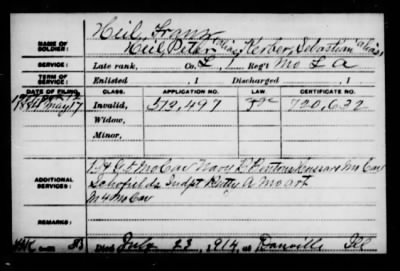 NAME OF SOLDIER:
Heil, Franz
Heil, Peter Alias, Kerber, Sebastian Alias
SERVICE:
Late rank, Co. L, 1 Reg't Mo L A
TERM OF SERVICE:
Enlisted , 1 Discharged , 1
DATE OF FILING.
CLASS.
APPLICATION NO.
LAW.
CERTIFICATE NO.
1884 May 17
Invalid, 512,497 720,632
Widow,
Minor,
ADDITIONAL SERVICES:
Mo Cav Hussars Mo Cav
Schofields Indpt Batty A Mo art
M 4 Mo Cav
REMARKS:
Died July 23, 1914, at Danville Ill